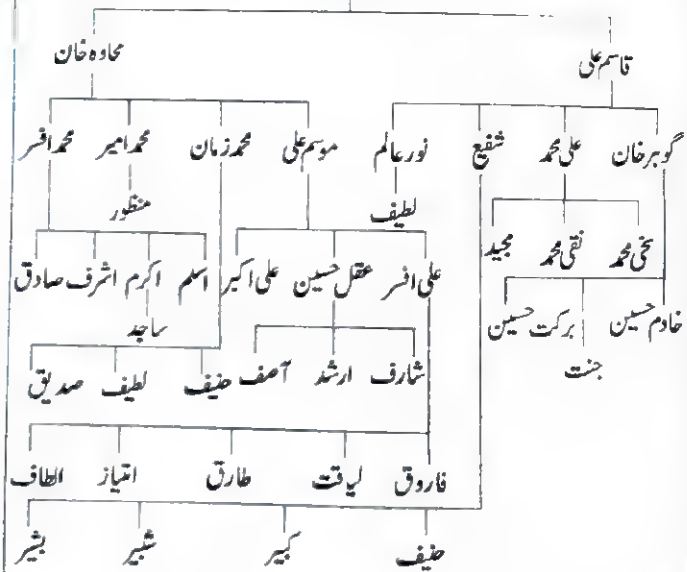 قاسم علی محاوہ خان
گوہر خان علی محمد شفیع نور عالم موسم علی محمد زمان محمد امیر محمد افسر
لطیف منظور
سخی محمد نقی محمد مجید علی افسر عقل حسین علی اکبر اسلم اکرم اشرف صادق
خادم حسین جنت برکت حسین ساجد
شارف ارشد آصف حنیف لطیف صدیق
فاروق لیاقت طارق امتیاز الطاف
حنیف کبیر شبیر بشیر